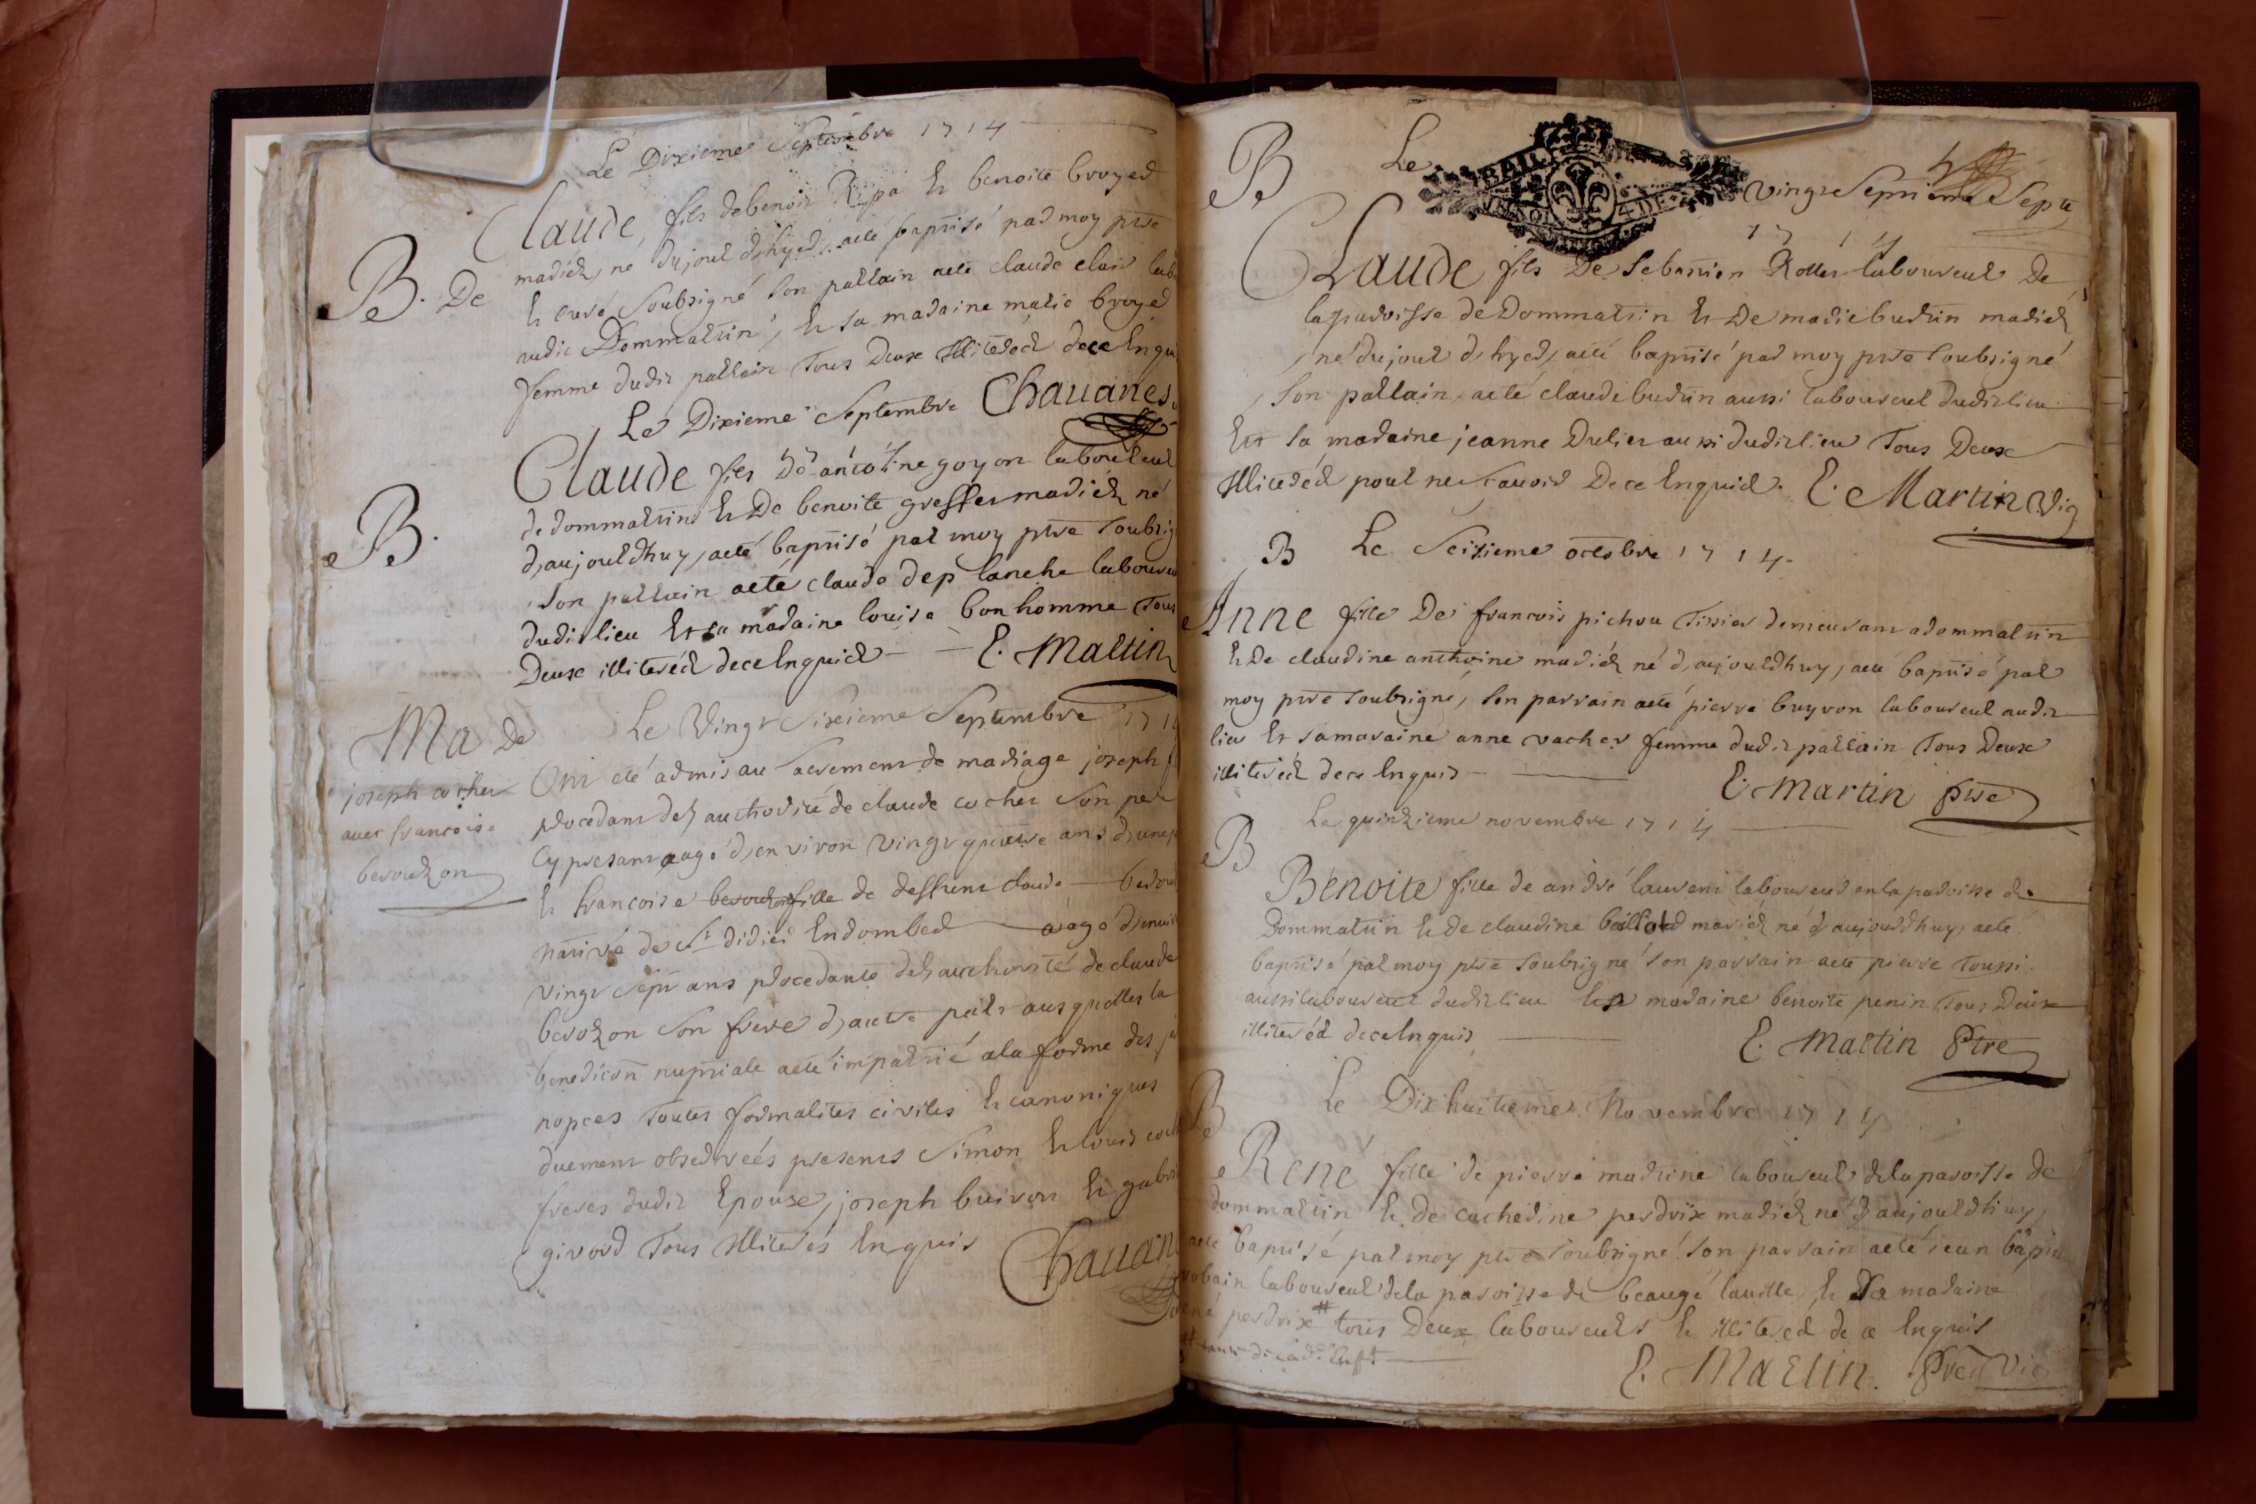 Le Dixieme Septembre 1714
Claude, fils de benoit Ripa et benoite broyer
B. De mariez, né dujour d,hyer, aeté baptisé par moy ptre
et curé soubsigné son parrain aeté claude clair lab
dudit Dommartin, et sa maraine marie broyer
femme dudit parrain Tous Deux illiterez dece Enqui
Le Dixieme Septembre Chauanes
Claude fils D'ancoinne goyon laboureur
B.
de dommartin et De benoite greffer mariez né
d,aujourdhuy, aeté baptisé par moy ptre soubsig
son parrain aeté claude deplanche laboureu
dudit lieu Et sa maraine louise bonhomme Tous
Deux illiteréz dece Enquiz E. Martin
Ma De Le Vingt Sixieme Septembre 1714
joseph cocher Ont eté admis au sacrement de mariage joseph
procedant dez authorité de claude cocher son per
auec francoise
Cy present aagé d,environ vingt quatre ans d,une p
berouzon
et francoise berouzon fille de deffunt claude berou
nativé de St didier Endombed aagé d,envir
vingt sept ans procedante dez authorité de claude
berozon son frere d,autre part ausquelles la
benediction nuptiale aeté impartié ala forme des
nopces Toutes formalités civiles et canoniques
duement observeés presents Simon et louis coch
freres dudit Epoux, joseph buiron et gabri
givord Tous illiterés Enquis Chauan
B Le Vingt Septieme Septe
1714
Claude fils De Sebastien Rollet laboureur De
la parroisse de Dommartin et De marie budin mariéz
né dujour d,hyer, aeté baptisé par moy ptre soubsigné
Son parrain aeté claude budin aussi laboureur dudit lieu
Et sa maraine jeanne Dulier aussi dudit lieu Tous Deux
illiteréz pour ne scavoir Dece Enquiz. E. Martin Vic
B Le Seizieme octobre 1714.
Anne fille De francois pichou Tissier demeurant adommartin
et De claudine anthoine mariéz né d,aujourdhuy, aeté baptisé par
moy ptre soubsigné, Son parrain aeté pierre buyron laboureur audit
lieu et samaraine anne vacher femme dudit parrain Tous Deux
illiteréz dece Enquis
E. Martin ptre
Le quinzieme novembre 1714
B
Benoite fille de andré laurent laboureur en la paroisse de
Dommartin et de claudine baillard mariéz né d,aujourdhuy, aeté
baptisé par moy ptre soubsigné son parrain aeté pierre Toussi
aussi laboureur dudit lieu et sa maraine benoite penin Tous Deux
illiteréz dece Enquis
E. Martin Ptre
B Le Dixhuitieme Novembre 1714
Rene fille de pierre martine laboureur dela paroisse de
dommartin et de catherine perdrix mariéz né d,aujourdhuy
aeté baptisé par moy ptre soubsigné son parrain aeté jean bapti
robain laboureur dela paroisse de beaugé lauille, et sa maraine
René perdrix # tous Deux laboureurs et illiteréz de ce Enquis
E. Martin. Ptre Vic